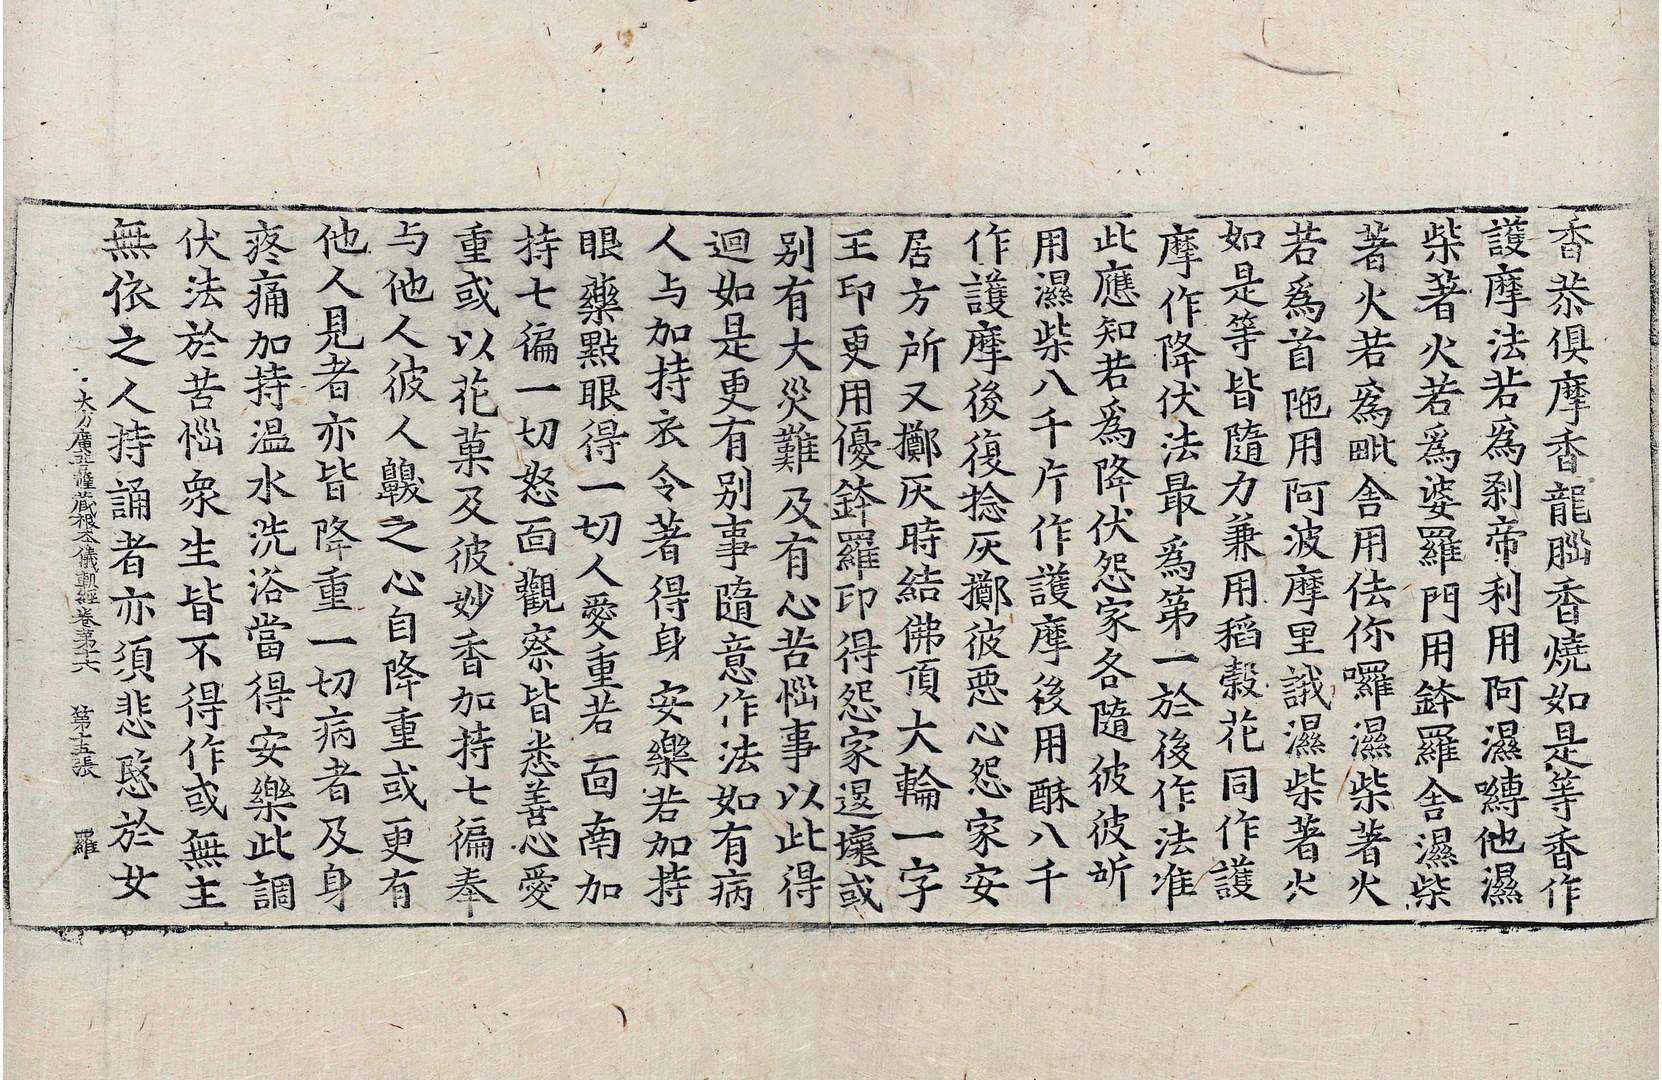 香恭俱摩香龍腦香燒如是等香作
護摩法若爲剎帝利用阿濕嚩他濕
柴著火若爲婆羅門用鉢羅舍濕柴
著火若爲毗舍用佉你囉濕柴著火
若爲首陁用阿波摩里誐濕柴著火
如是等皆隨力兼用稻穀花同作護
摩作降伏法最爲第一於後作法准
此應知若爲降伏怨家各隨彼彼所
用濕柴八千片作護摩後用酥八千
作護摩後復捻灰擲彼惡心怨家安
居方所又擲灰時結佛頂大輪一字
王印更用優鉢羅印得怨家退壞或
别有大災難及有心苦惱事以此得
迴如是更有别事隨意作法如有病
人与加持衣令著得身安樂若加持
眼藥點眼得一切人愛重若面南加
持七徧一切怒面觀察皆悉善心愛
重或以花菓及彼妙香加持七徧奉
与他人彼人齅之心自降重或更有
他人見者亦皆降重一切病者及身
疼痛加持温水洗浴當得安樂此調
伏法於苦惱衆生皆不得作或無主
無依之人持誦者亦須悲愍於女
大方廣菩薩藏根本儀軌經卷第十六 第十五張 羅